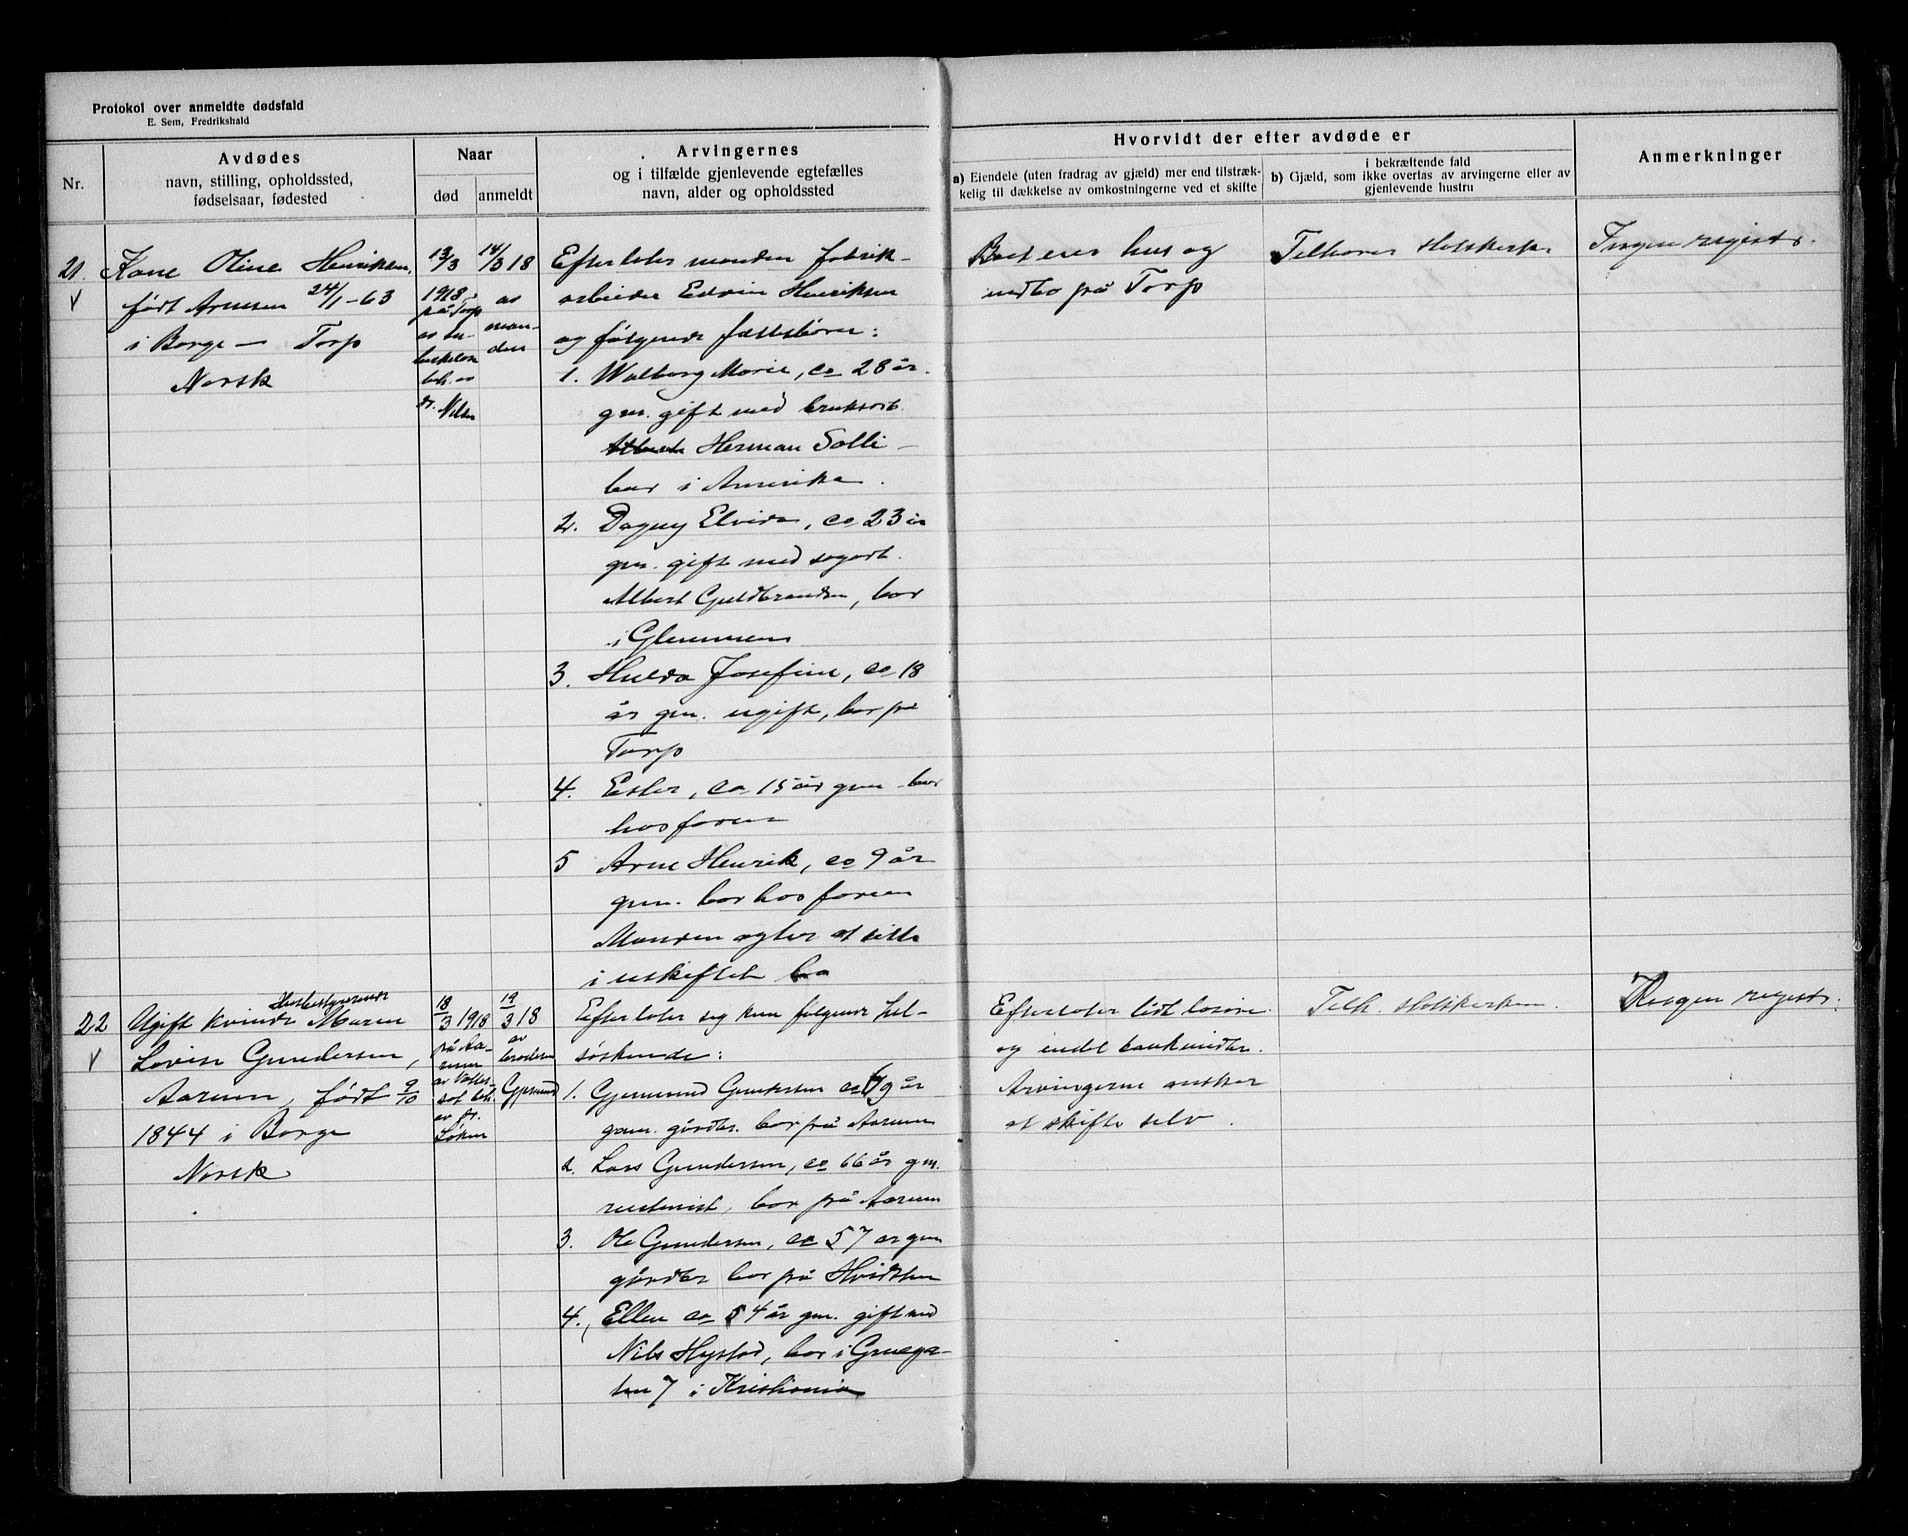 Protokol over anmeldte dødsfald
E. Sem, Fredrikshald
Nr.
Avdødes
navn, stilling, opholdssted,
fødselsaar, fødested
Naar
død
anmeldt
Arvingernes
og i tilfælde gjenlevende egtefælles
navn, alder og opholdssted
Hvorvidt der efter avdøde er
a) Eiendele (uten fradrag av gjæld) mer end tilstræk-
kelig til dækkelse av omkostningerne ved et skifte
i bekræftende fald
b) Gjæld, som ikke overtas av arvingerne eller av
gjenlevende hustru
Anmerkninger
21.
V
Kone Oline Henriksen,
født Arnesen 24/1-63
i Borge - Torp
Norsk
13/3
1918
på Torp
av tu-
berkelose
beh. av
dr. Nilsen
14/3 18
av
man-
den
Efterlater manden fabrik-
arbeider Edvin Henriksen
og følgende fællesbørn:
1. Walborg Marie, ca 28 år.
gm. gift med bruksarb.
Herman Solli -
bor i Amerika.
2. Dagny Elvida, ca 23 år
gm. gift med sagarb.
Albert Guldbrandsen, bor
i Glemmen
3. Hulda Josefine, ca 18
år gm. ugift, bor på
Torp
4. Ester, ca 15 år gm bor
hos faren
5 Arne Henrik, ca 9 år
gm. bor hos faren
Manden agter at sitte
i uskiftet bo
Boet eier hus og
indbo på Torp
Tilhører statskirken
Ingen registr.
22
V
Husbestyrerinde
Ugift kvinde Maren
Lovise Gundersen,
Aarum, født 9/10
1844 i Borge
Norsk
18/3 1918
på Aa-
rum
av Vatter-
sot beh.
av dr.
Løken
19/3 18
av
broderen
Gjermund
Efterlater sig kun følgende hel-
søskende:
1. Gjermund Gundersen ca 69 år
gam. gårdbr. bor på Aarum
2. Lars Gundersen, ca 66 år gm.
rustenist, bor på Aarum
3. Ole Gundersen, ca 57 år gm
gårdbr bor på Hvidsten
4., Ellen ca 54 år gm. gift med
Nils Hystad, bor i Gruega-
ten 7 i Kristiania
Efterlater lidt løsøre
og endel bankindsk.
Arvingerne ønsker
at skifte selv.
Tilh. statskirken.
Ingen registr.